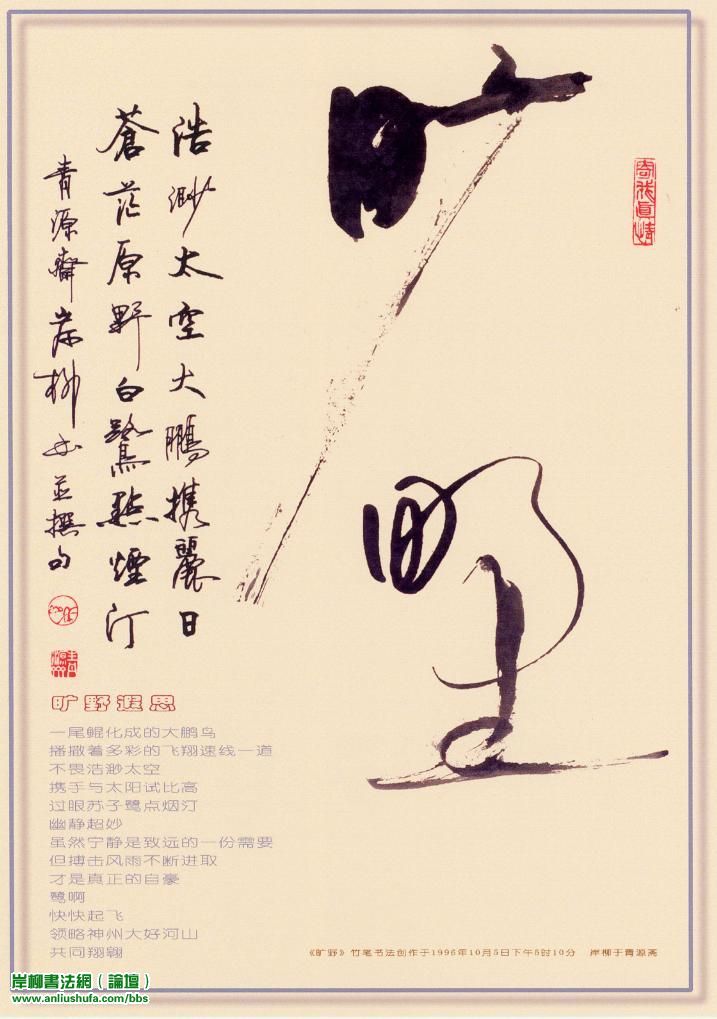 旷野
浩渺太空大鹏携麗日
蒼茫原野白鷺點煙汀
青源齋岸柳书並撰句
旷野遐思
一尾鲲化成的大鹏鸟
播撒着多彩的飞翔速线一道
不畏浩渺太空
携手与太阳试比高
过眼苏子鹭点烟汀
幽静超妙
虽然宁静是致远的一份需要
但搏击风雨不断进取
才是真正的自豪
鹭啊
快快起飞
领略神州大好河山
共同翔翱
《旷野》竹笔书法创作于1996年10月5日下午5时10分 岸柳于青源斋
岸柳書法網（論壇）
www.anliushufa.com/bbs